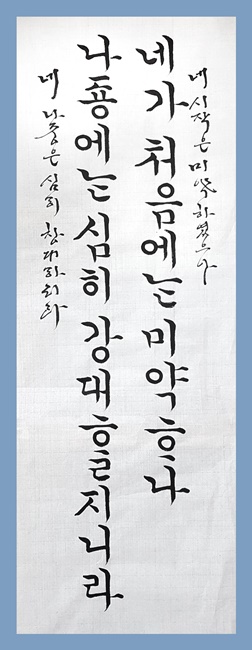 네 시작은 미약하였으나
네가 처음에는 미약ᄒᆞ나
나죵에는 심히 강대ᄒᆞᆯ지니라
네 나중은 심히 창대하리라